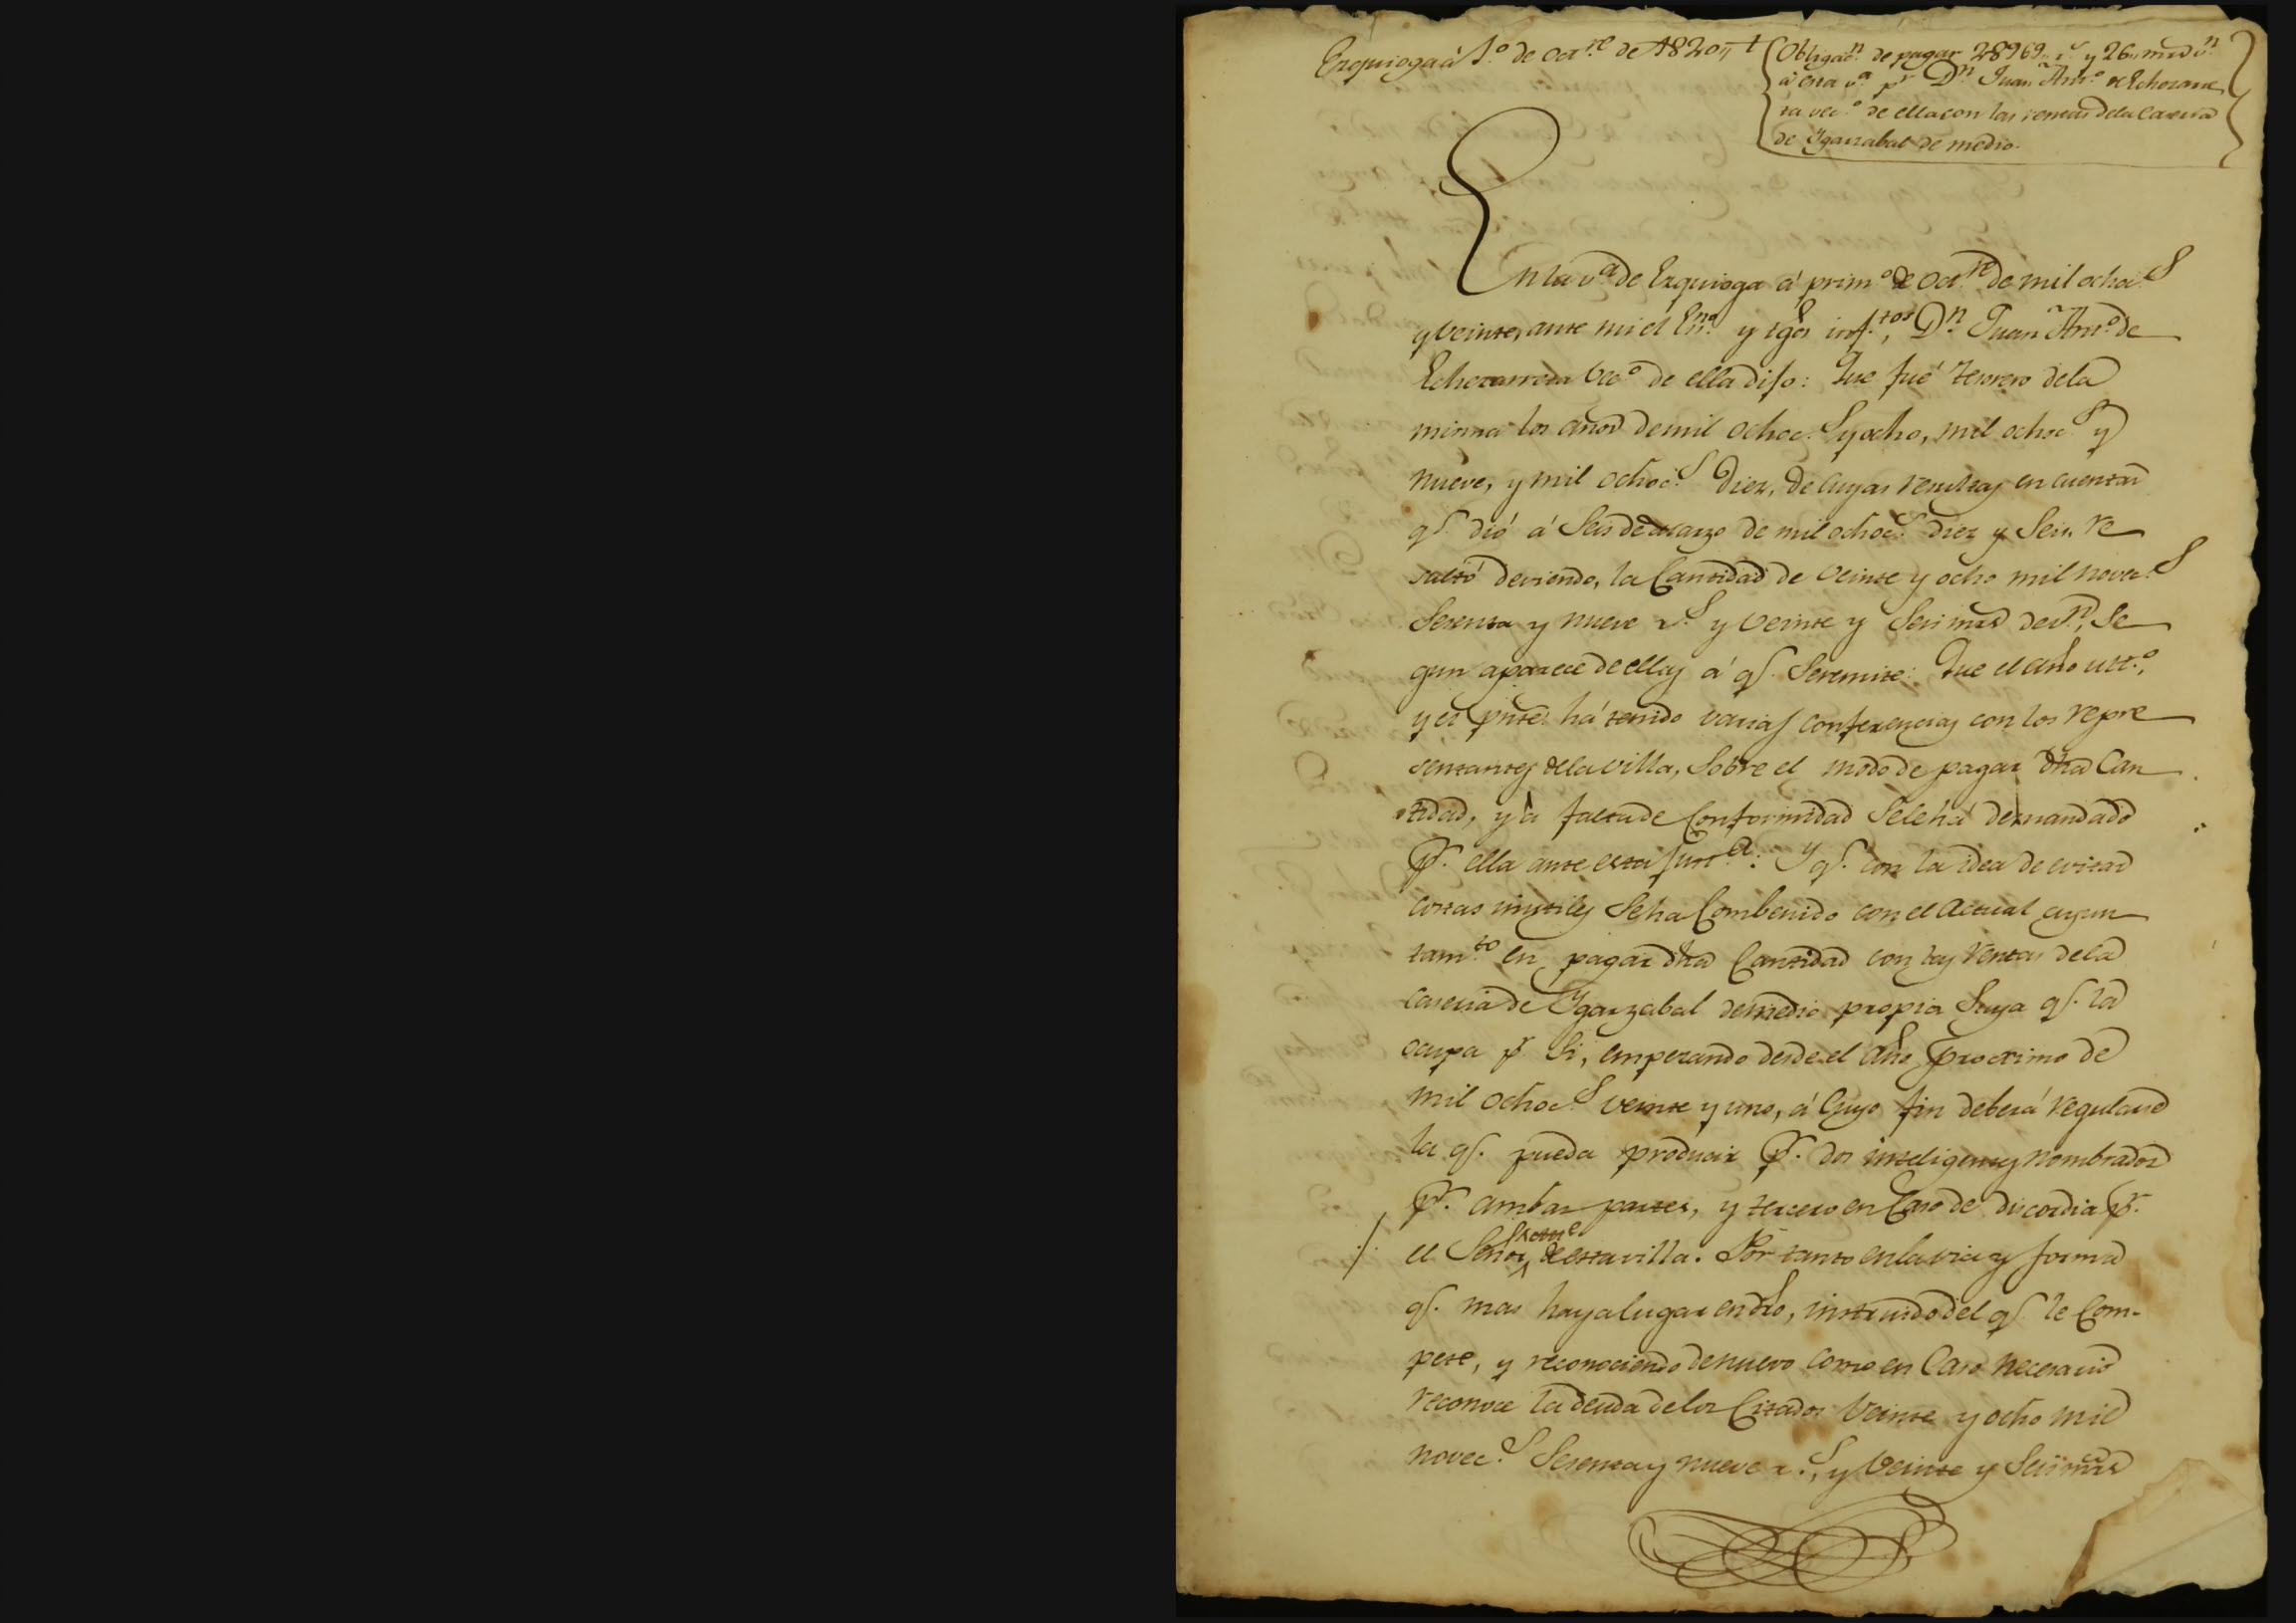 Ezquioga à 1.º de Oct.re de 1820,, t
Obligac.n de pagar 28969,, r.s y 26,, mrs d v.n
à esta v.a p.r D.n Juan Ant.º de Echezarre
ta vec.º de ella con las rentas de la Caseria
de Ygarzabal de medio.
En la v.a de Ezquioga á prim.º de Oct.re de mil ochoc.s
y veinte, ante mi el Es.no y tgos inf.tos, D.n Juan Ant.º de
Echezarreta vec.º de ella dijo: Que fué tesorero de la
misma los años de mil ochoc.s y ocho, mil ochoc.s y
nueve, y mil ochoc.s diez, de cuyas resultas en cuentas
q.e dió á seis de marzo de mil ochoc.s diez y seis, re
sultó deviendo, la Cantidad de veinte y ocho mil novec.s
sesenta y nueve r.s y veinte y seis mrs de v.n, se
gun aparece de ellas á q.e se remite: Que el año ult.º,
y el prite. há tenido varias conferencias con los repre
sentantes de la villa, sobre el modo de pagar dha Can
tidad, y á falta de Conformidad se le há demandado
p.r ella ante esta Just.a: Y q.e con la idea de evitar
costas inutiles se ha Combenido con el actual ayun
tam.to en pagar dha Cantidad con las rentas de la
caseria de Ygarzabal de medio propia suya q.e la
ocupa p.r si, empezando desde el año proximo de
mil ochoc.s veinte y uno, á cuyo fin deberá regularse
la q.e pueda producir p.r dos inteligentes nombrados
p.r ambas partes, y tercero en Caso de discordia p.r
el Señor de esta villa. Por tanto en la via y forma
q.e mas haya lugar en dro, instruido del q.e le Com-
pete, y reconociendo de nuevo como en Caso necesario
reconoce la deuda de los Citados veinte y ocho mil
novec.s sesenta y nueve r.s, y veinte y seis mrs